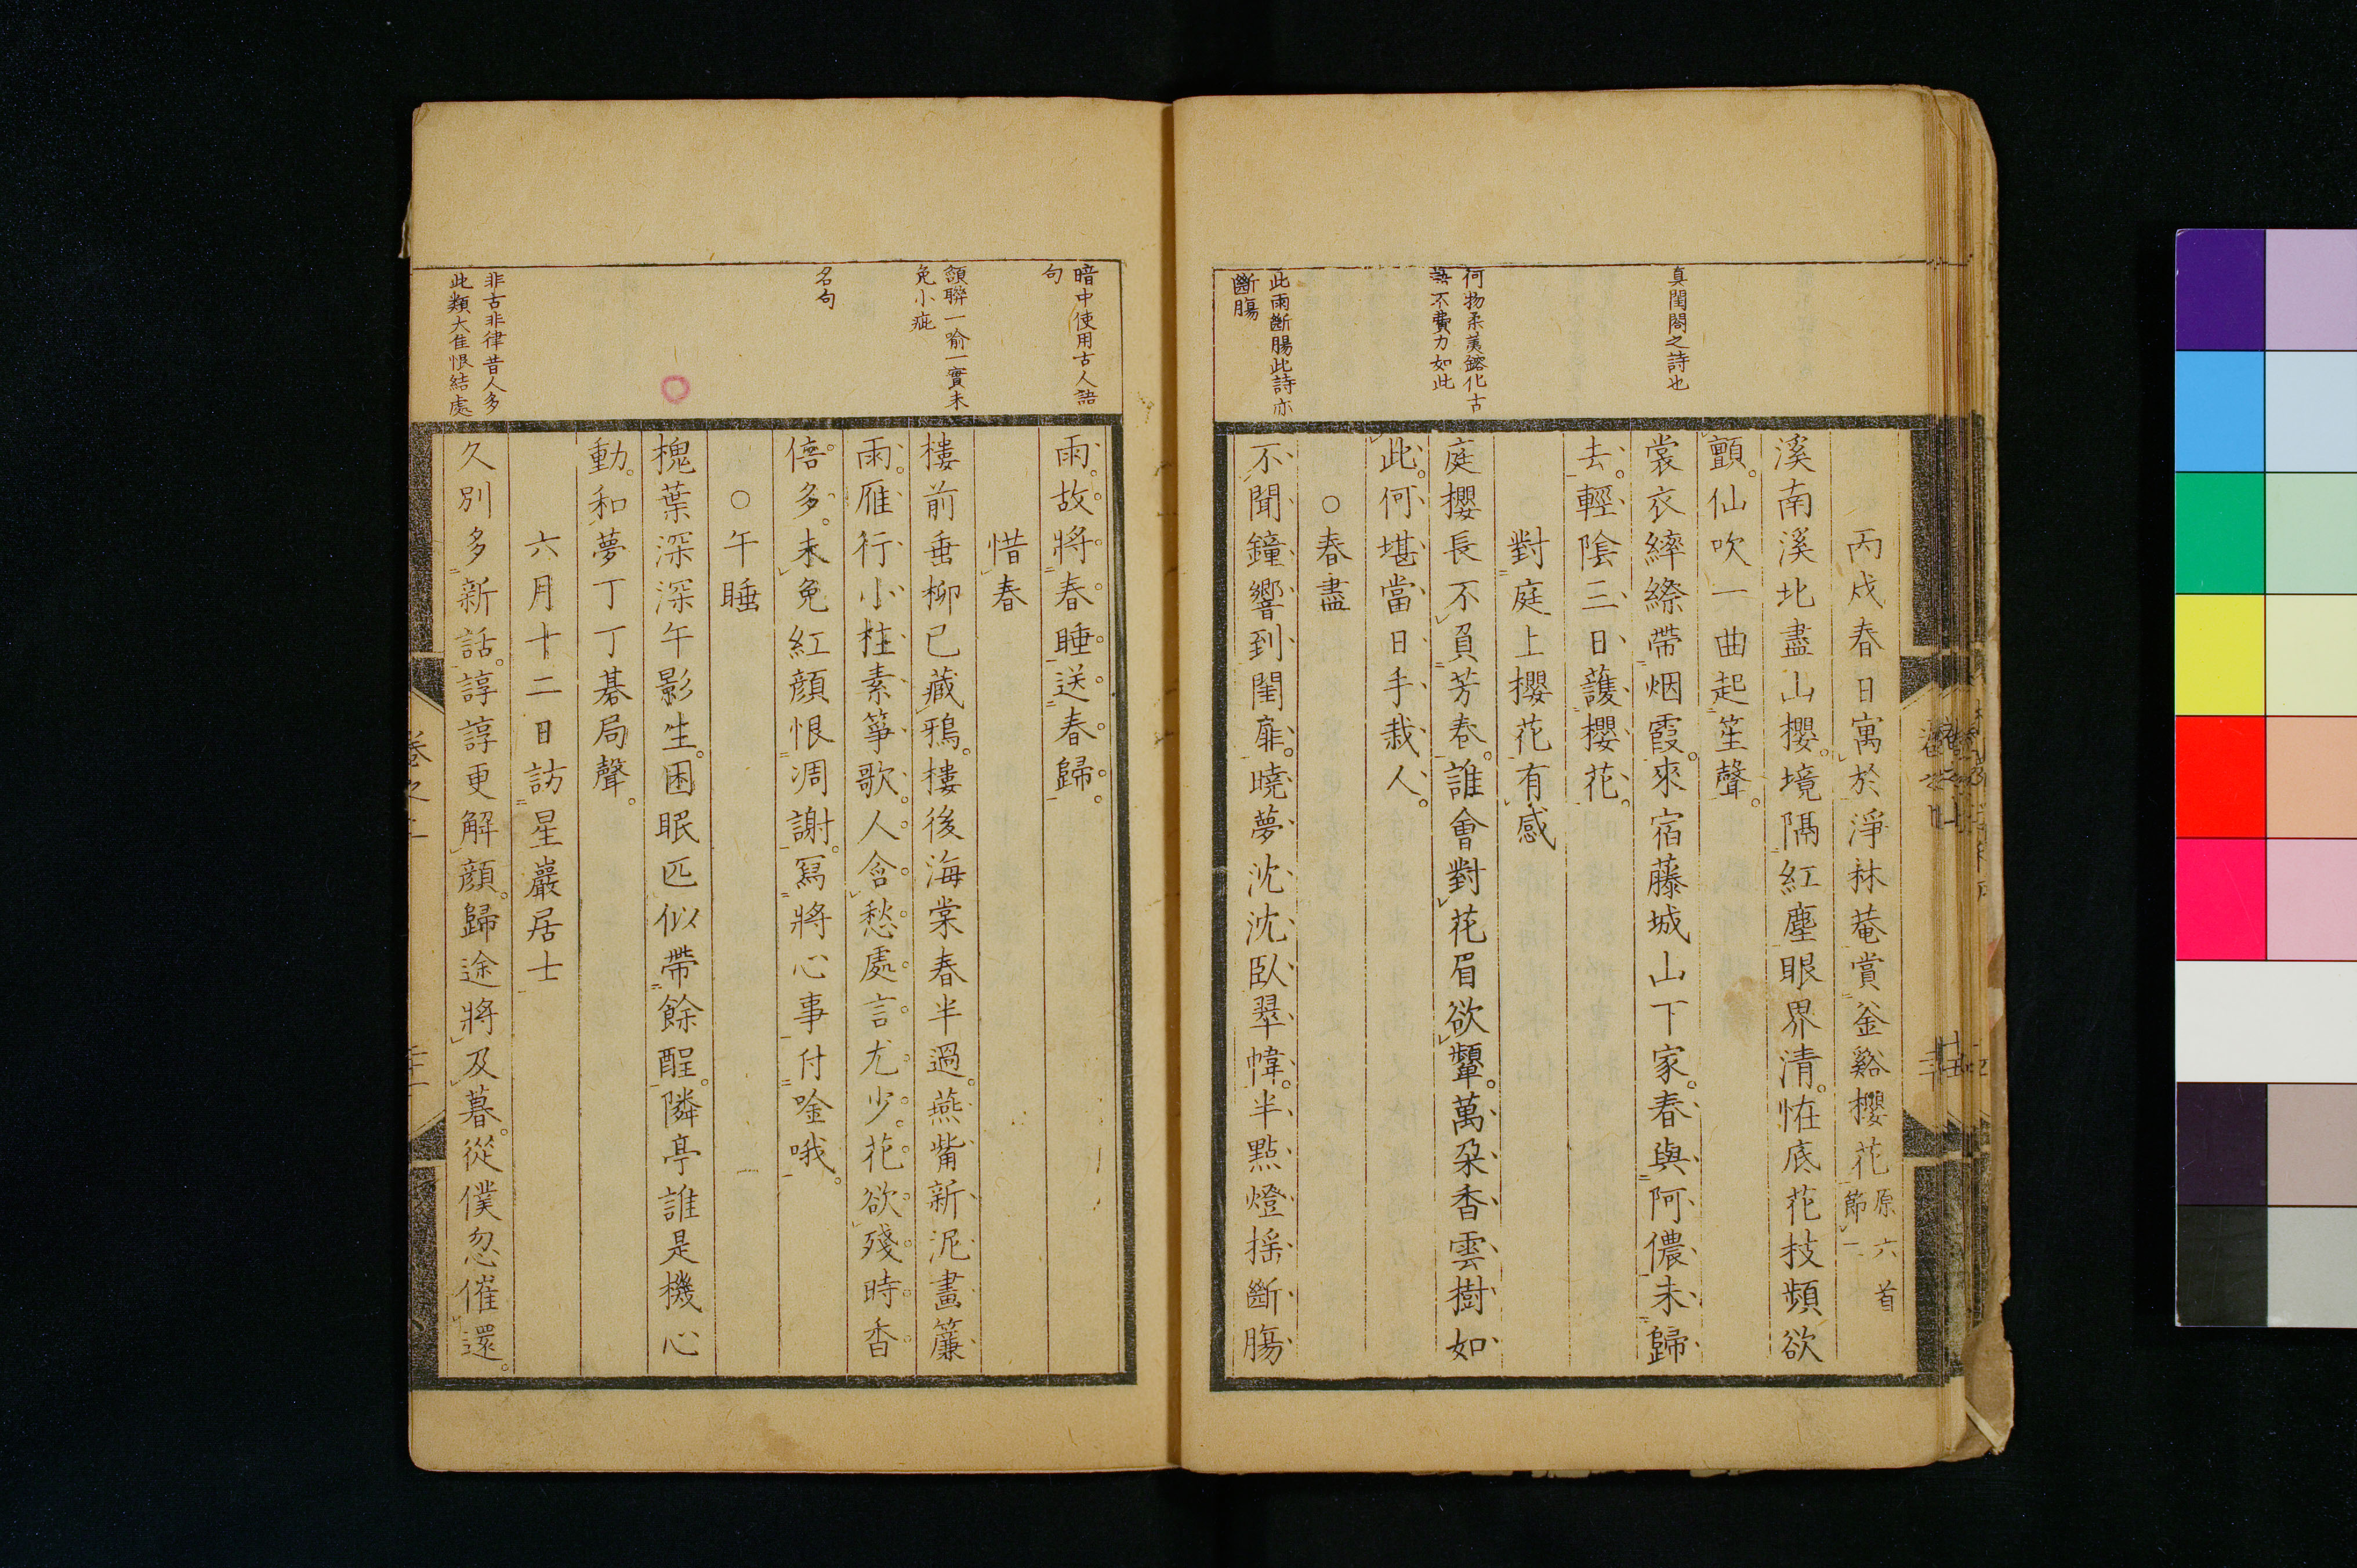 真閨閤之詩也
何物柔荑鎔化古
語不費力如此
此雨斷腸此詩亦
斷膓
丙戌春日寓於淨秝菴賞釜谿櫻花原六首
節二
溪南溪北盡山櫻。境隔紅塵眼界清。恠底花枝頻欲
顫。仙吹一曲起笙聲。
裳衣縡縩帶烟霞。來宿藤城山下家。春與阿儂未歸
去。輕陰三日護櫻花。
對庭上櫻花有感
庭櫻長不負芳春。誰會對花眉欲顰。萬朶香雲樹如
此。何堪當日手栽人。
○春盡
不聞鐘響到閨扉。曉夢沈沈臥翠幃。半點燈搖斷膓
暗中使用古人語
句
頷聯一喻一實未
免小疵
名句
非古非律昔人多
此類大佳恨結處
雨。故將春睡送春歸。
惜春
樓前垂柳已藏鴉。樓後海棠春半過。燕觜新泥畫簾
雨。雁行小柱素箏歌。人含愁處言尤少。花欲殘時香
倍多。未免紅顔恨凋謝。寫將心事付唫哦。
○午睡
槐葉深深午影生。困眠匹似帶餘酲。隣亭誰是機心
動。和夢丁丁碁局聲。
六月十二日訪星巖居士
久別多新話。諄諄更解顔。歸途將及暮。從僕忽催還。